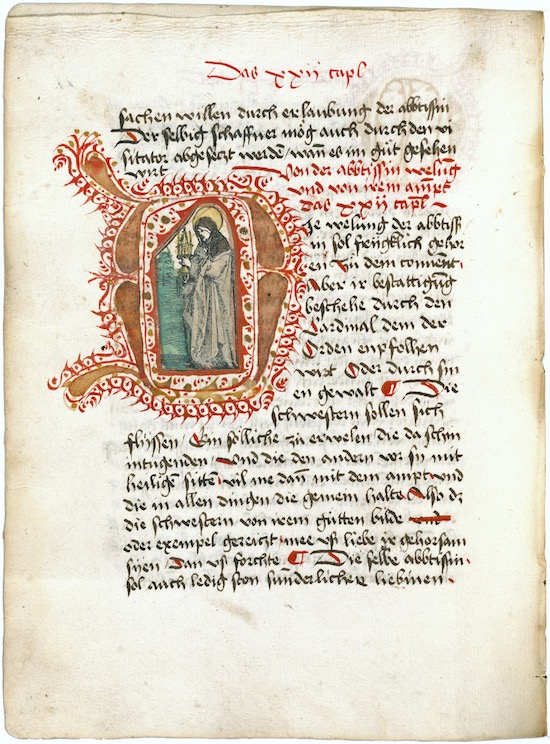 Das xxij capl
sachen willen durch erlaubung der abbtissin
Der selbig schaffner mög auch durch den vi
sitator abgesetzt werden wann es im gůt gesehen
wirt Von der abbtissin welung
und von irem ampt
das xxij capl
Die welung der abbtiss
in sol frenglich gehor
en zů dem convent
Aber ir bestattigung
beschehe durch den
Cardinal dem der
Orden enpfolhen
wirt Oder durch sin
en gewalt Die
schwestern sollen sich
flyssen Ein solliche zu erwelen die da schin
in tugenden Und die den andern vor sy mit
heiligen sitten vil me dann mit dem ampt und
die in allen dingen die gemein halte Also dz
die schwestern von irem gůtten bilde und
oder exempel gereitzt mee uß liebe ir gehorsam
syen Dan uß forchte Die selbe abbtissin
sol auch ledig ston sunderlicher liebinen